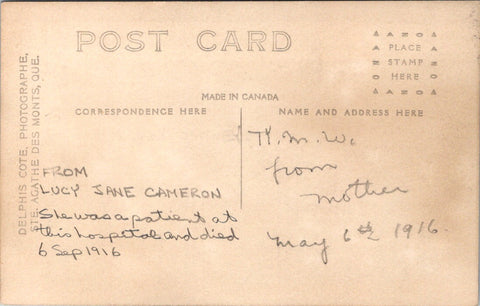 POST CARD
PLACE
STAMP
HERE
MADE IN CANADA
CORRESPONDENCE HERE
NAME AND ADDRESS HERE
DELPHIS COTE, PHOTOGRAPHE,
STE. AGATHE DES MONTS, QUE.
FROM
LUCY JANE CAMERON
She was a patient at
this hospital and died
6 Sep 1916
K.M.W.
from
mother
May 6th 1916.